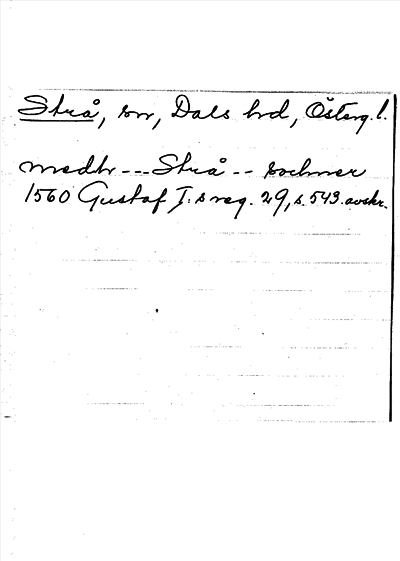 Strå, sn, Dals hrd, Österg. l.
medh --- Strå -- sochner
1560 Gustaf I. s reg. 29, s. 543. avskr.